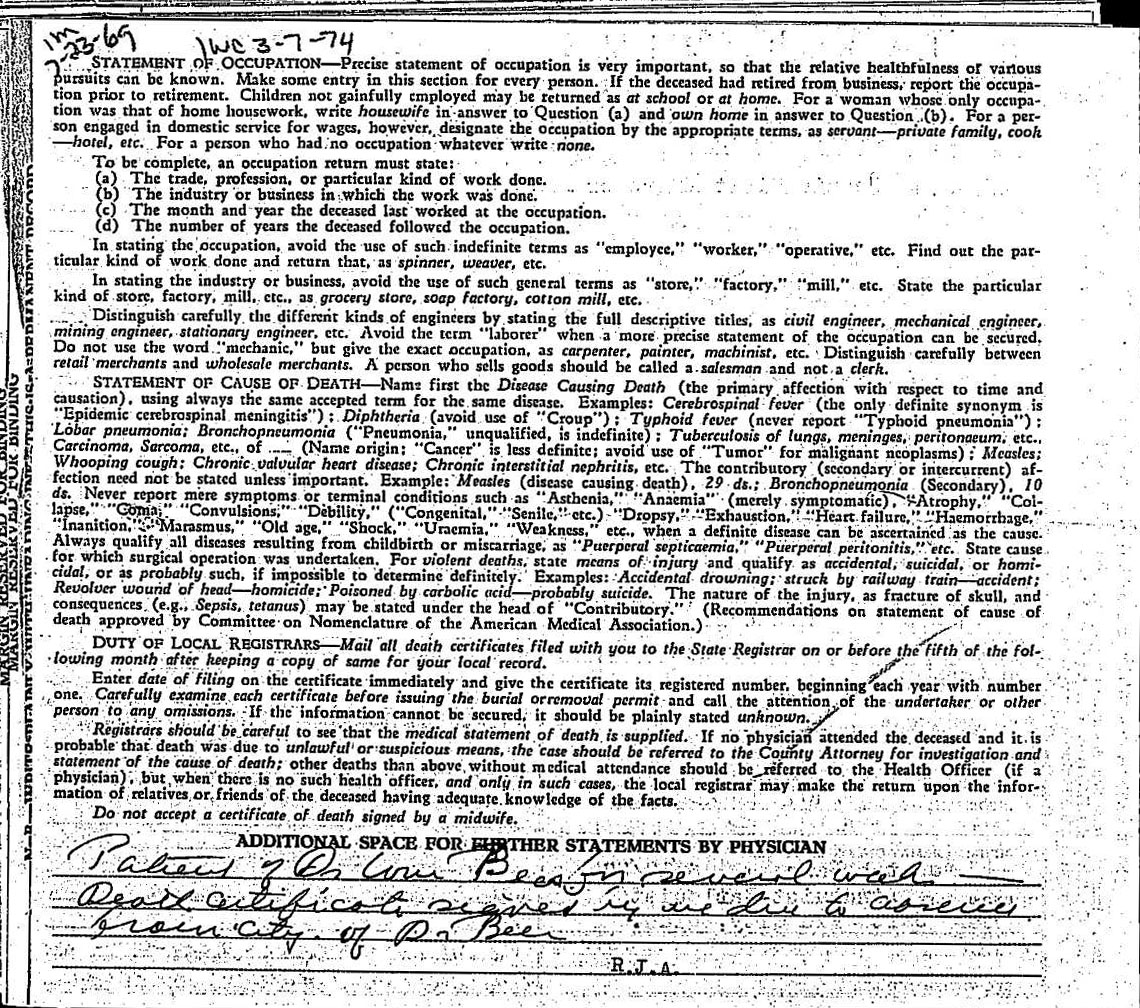 1m
7-23-69 JWC 3-7-74
STATEMENT OF OCCUPATION—Precise statement of occupation is very important, so that the relative healthfulness of various
pursuits can be known. Make some entry in this section for every person. If the deceased had retired from business, report the occupa-
tion prior to retirement. Children not gainfully employed may be returned as at school or at home. For a woman whose only occupa-
tion was that of home housework, write housewife in answer to Question (a) and own home in answer to Question (b). For a per-
son engaged in domestic service for wages, however, designate the occupation by the appropriate terms, as servant—private family, cook
—hotel, etc. For a person who had no occupation whatever write none.
To be complete, an occupation return must state:
(a) The trade, profession, or particular kind of work done.
(b) The industry or business in which the work was done.
(c) The month and year the deceased last worked at the occupation.
(d) The number of years the deceased followed the occupation.
In stating the occupation, avoid the use of such indefinite terms as "employee," "worker," "operative," etc. Find out the par-
ticular kind of work done and return that, as spinner, weaver, etc.
In stating the industry or business, avoid the use of such general terms as "store," "factory," "mill," etc. State the particular
kind of store, factory, mill, etc., as grocery store, soap factory, cotton mill, etc.
Distinguish carefully the different kinds of engineers by stating the full descriptive titles, as civil engineer, mechanical engineer,
mining engineer, stationary engineer, etc. Avoid the term "laborer" when a more precise statement of the occupation can be secured.
Do not use the word "mechanic," but give the exact occupation, as carpenter, painter, machinist, etc. Distinguish carefully between
retail merchants and wholesale merchants. A person who sells goods should be called a salesman and not a clerk.
STATEMENT OF CAUSE OF DEATH—Name first the Disease Causing Death (the primary affection with respect to time and
causation), using always the same accepted term for the same disease. Examples: Cerebrospinal fever (the only definite synonym is
"Epidemic cerebrospinal meningitis"); Diphtheria (avoid use of "Croup"); Typhoid fever (never report "Typhoid pneumonia");
Lobar pneumonia; Bronchopneumonia ("Pneumonia," unqualified, is indefinite); Tuberculosis of lungs, meninges, peritonaeum, etc.,
Carcinoma, Sarcoma, etc., of ...... (Name origin; "Cancer" is less definite; avoid use of "Tumor" for malignant neoplasms); Measles;
Whooping cough; Chronic valvular heart disease; Chronic interstitial nephritis, etc. The contributory (secondary or intercurrent) af-
fection need not be stated unless important. Example: Measles (disease causing death), 29 ds.; Bronchopneumonia (Secondary), 10
ds. Never report mere symptoms or terminal conditions such as "Asthenia," "Anaemia" (merely symptomatic), "Atrophy," "Col-
lapse," "Coma," "Convulsions," "Debility," ("Congenital," "Senile," etc.) "Dropsy," "Exhaustion," "Heart failure," "Haemorrhage,"
"Inanition," "Marasmus," "Old age," "Shock," "Uraemia," "Weakness," etc., when a definite disease can be ascertained as the cause.
Always qualify all diseases resulting from childbirth or miscarriage, as "Puerperal septicaemia," "Puerperal peritonitis," etc. State cause
for which surgical operation was undertaken. For violent deaths, state means of injury and qualify as accidental, suicidal, or homi-
cidal, or as probably such, if impossible to determine definitely. Examples: Accidental drowning; struck by railway train—accident;
Revolver wound of head—homicide; Poisoned by carbolic acid—probably suicide. The nature of the injury, as fracture of skull, and
consequences (e.g., Sepsis, tetanus) may be stated under the head of "Contributory." (Recommendations on statement of cause of
death approved by Committee on Nomenclature of the American Medical Association.)
DUTY OF LOCAL REGISTRARS—Mail all death certificates filed with you to the State Registrar on or before the fifth of the fol-
lowing month after keeping a copy of same for your local record.
Enter date of filing on the certificate immediately and give the certificate its registered number, beginning each year with number
one. Carefully examine each certificate before issuing the burial or removal permit and call the attention of the undertaker or other
person to any omissions. If the information cannot be secured, it should be plainly stated unknown.
Registrars should be careful to see that the medical statement of death is supplied. If no physician attended the deceased and it is
probable that death was due to unlawful or suspicious means, the case should be referred to the County Attorney for investigation and
statement of the cause of death; other deaths than above without medical attendance should be referred to the Health Officer (if a
physician), but when there is no such health officer, and only in such cases, the local registrar may make the return upon the infor-
mation of relatives or friends of the deceased having adequate knowledge of the facts.
Do not accept a certificate of death signed by a midwife.
ADDITIONAL SPACE FOR FURTHER STATEMENTS BY PHYSICIAN
Patient of Dr Wm Beer for several weeks —
Death certificate signed by me due to absence
from city of Dr Beer
R.J.A.
MARGIN RESERVED FOR BINDING